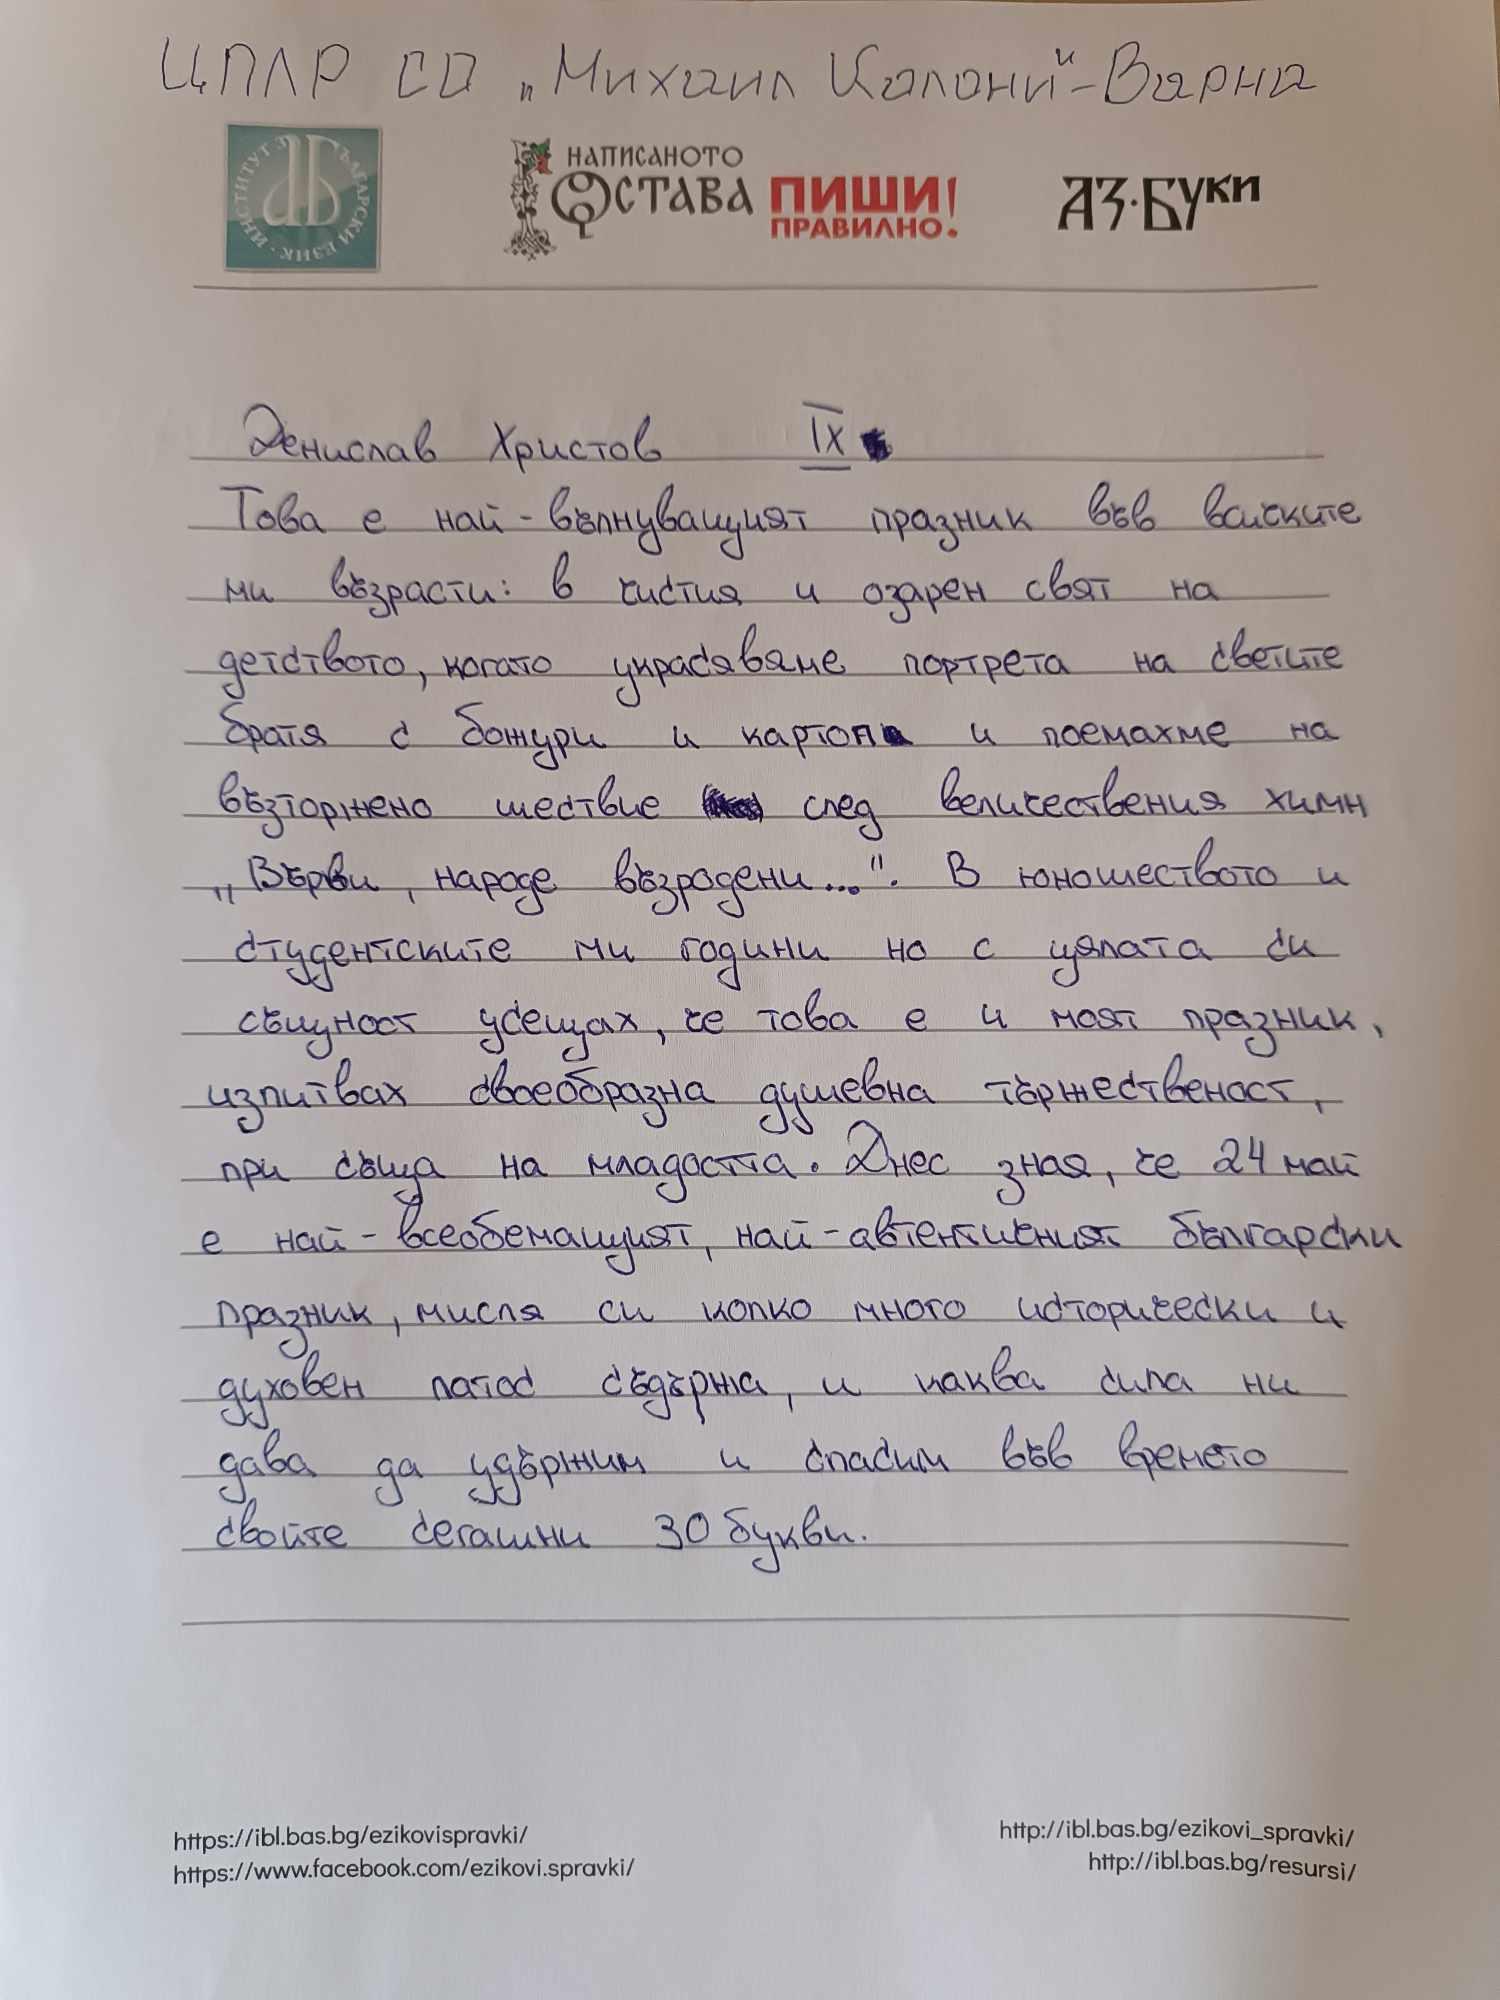 ЦПЛР СО „Михаил Колони“ - Варна
ИНСТИТУТ ЗА БЪЛГАРСКИ ЕЗИК
НАПИСАНОТО
ОСТАВА ПИШИ
ПРАВИЛНО!
АЗ·БУКИ
Денислав Христов IX
Това е най-вълнуващият празник във всичките
ми възрасти: в чистия и озарен свят на
детството, когато украсявяме портрета на светите
братя с божури и картон и поемахме на
възторжено шествие след величествения химн
„Върви, народе възродени...“. В юношеството и
студентските ми години но с цялата си
същност усещах, че това е и моят празник,
изпитвах своеобразна душевна тържественост,
при съща на младостта. Днес зная, че 24 май
е най-всеобемащият, най-автентичният български
празник, мисля си колко много исторически и
духовен патос съдържа, и каква сила ни
дава да удържим и спасим във времето
своите сегашни 30 букви.
https://ibl.bas.bg/ezikovispravki/
https://www.facebook.com/ezikovi.spravki/
http://ibl.bas.bg/ezikovi_spravki/
http://ibl.bas.bg/resursi/